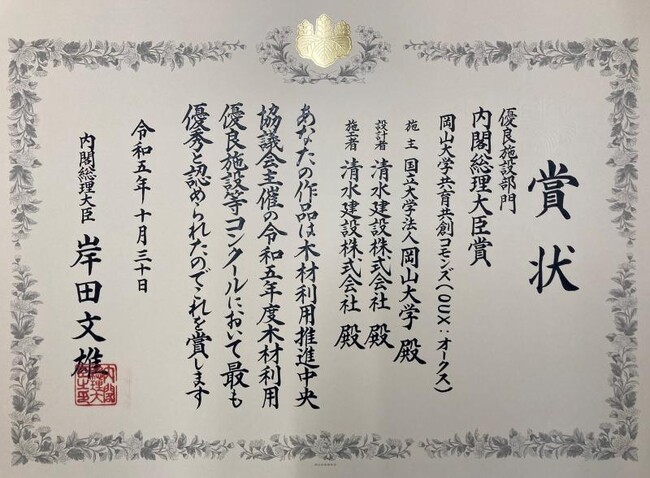 賞状
優良施設部門
内閣総理大臣賞
岡山大学共育共創コモンズ(OUX:オークス)
施主 国立大学法人 岡山大学 殿
設計者 清水建設株式会社 殿
施工者 清水建設株式会社 殿
あなたの作品は木材利用推進中央
協議会主催の令和五年度木材利用
優良施設等コンクールにおいて最も
優秀と認められたのでこれを賞します
令和五年十月三十日
内閣総理大臣 岸田文雄